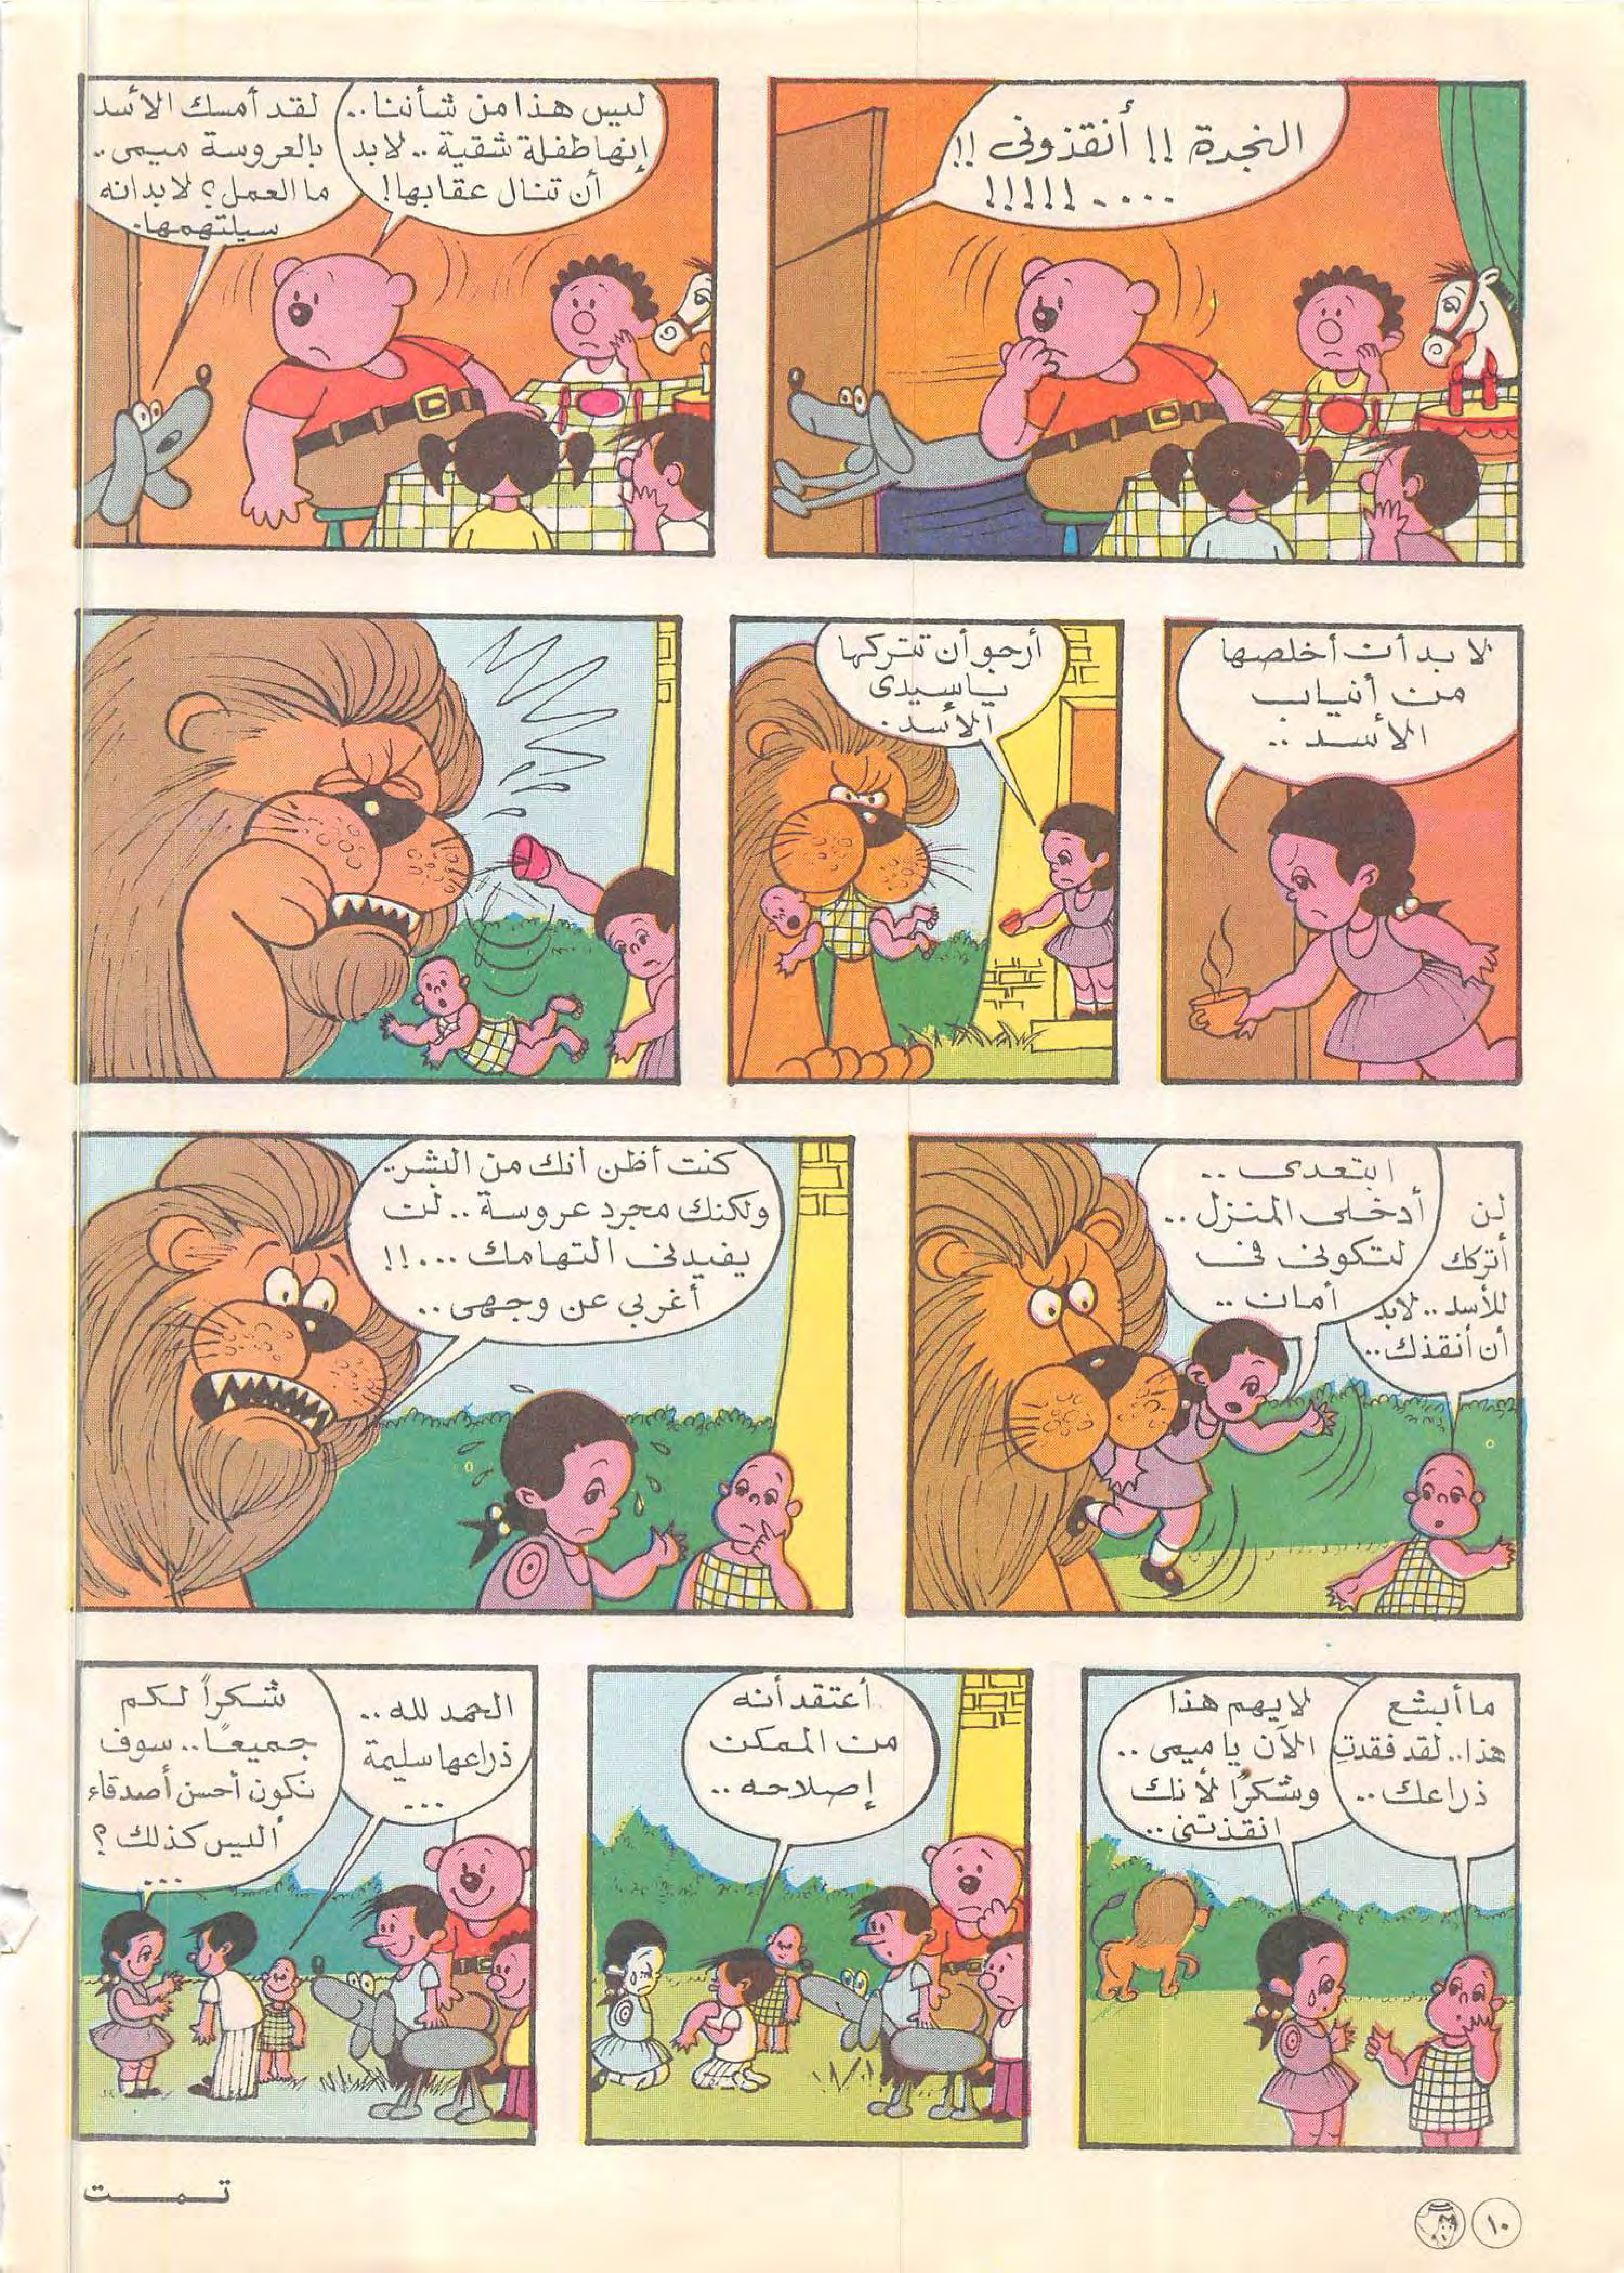 النجدة !! أنقذونى !!
.... !!!!!
ليس هذا من شأننا..
إنها طفلة شقية .. لابد
أن تنال عقابها !
لقد أمسك الأسد
بالعروسة ميمى..
ما العمل؟ لابد انه
سيلتهمها.
لا بد أن أخلصها
من أنياب
الأسد ..
أرجو أن تتركها
ياسيدى
الأسد .
لن
أتركك
للأسد .. لابد
أن أنقذك ..
ابتعدى ..
أدخلى المنزل ..
لتكونى فى
أمان ..
كنت أظن انك من البشر..
ولكنك مجرد عروسة .. لن
يفيدنى التهامك ...!!
أغربي عن وجهى ..
ما أبشع
هذا.. لقد فقدتِ
ذراعك ..
لا يهم هذا
الآن يا ميمى ..
وشكرًا لأنك
انقذتنى ..
أعتقد أنه
من الممكن
إصلاحه ..
الحمد لله ..
ذراعها سليمة
...
شكراً لكم
جميعًا .. سوف
نكون أحسن أصدقاء
أليس كذلك ؟
...
تمت
١٠